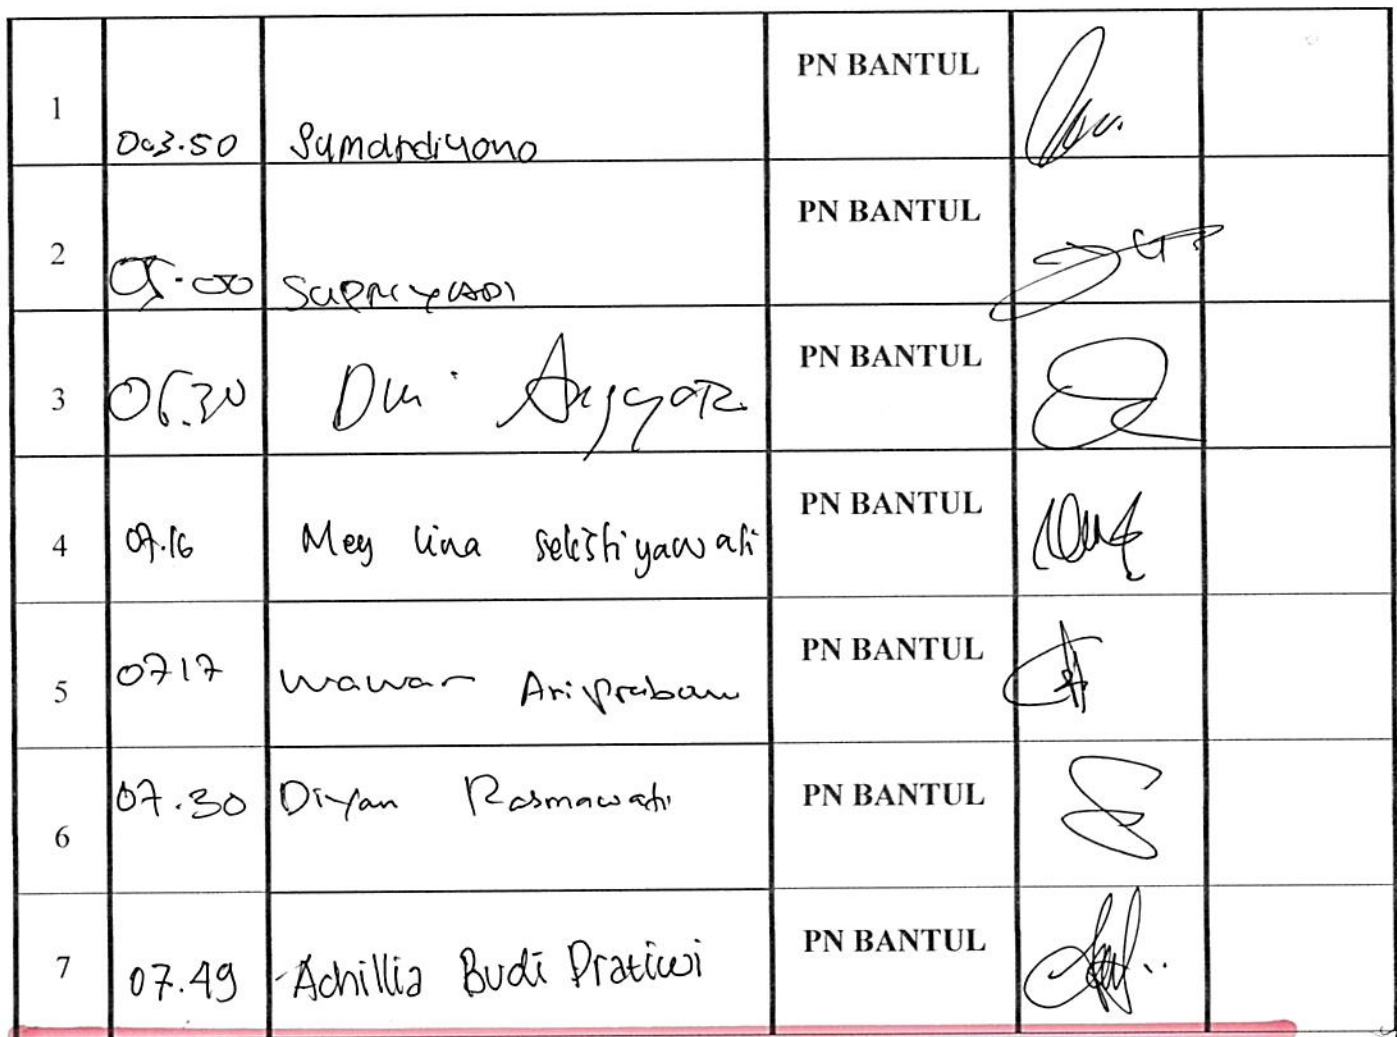 1 003.50 Sumardiyono PN BANTUL
2 05.00 SUPRIYADI PN BANTUL
3 06.30 Dwi Anggoro PN BANTUL
4 07.16 Mey Lina Selistiyawati PN BANTUL
5 0717 Wawan Ari Prabowo PN BANTUL
6 07.30 Diyan Rasmawati PN BANTUL
7 07.49 Achillia Budi Pratiwi PN BANTUL